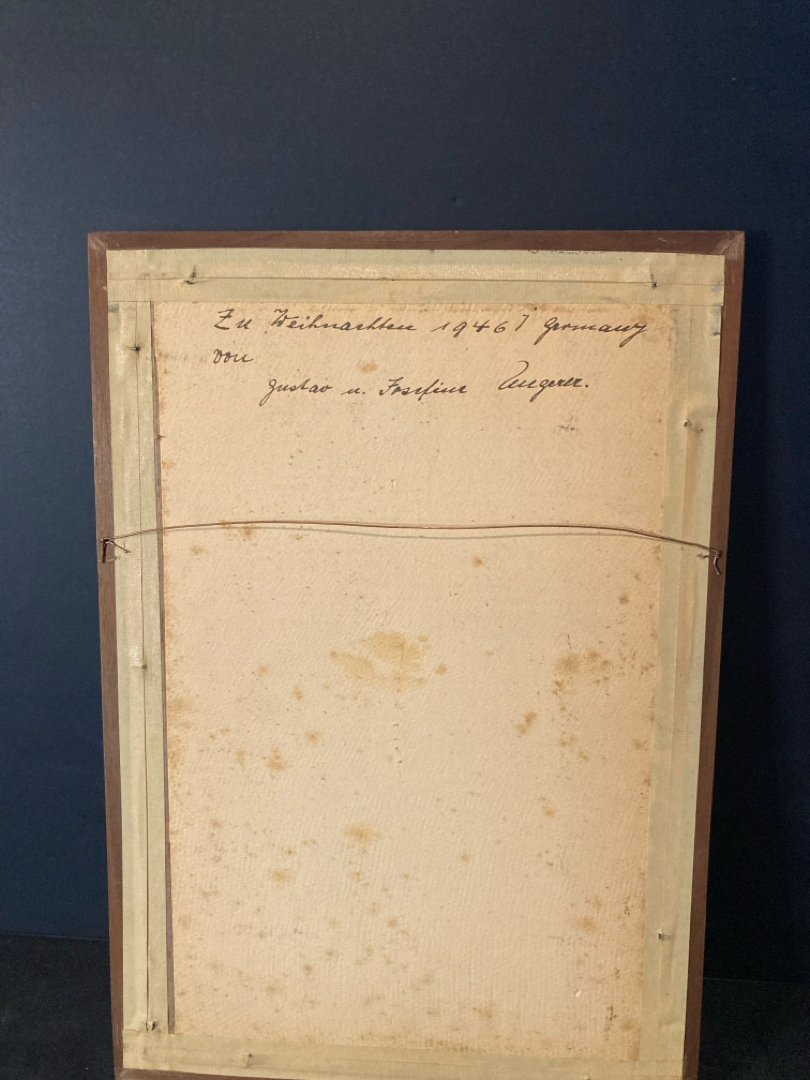 Zu Weihnachten 1946 Germany
von
Gustav u. Josefine Angerer.